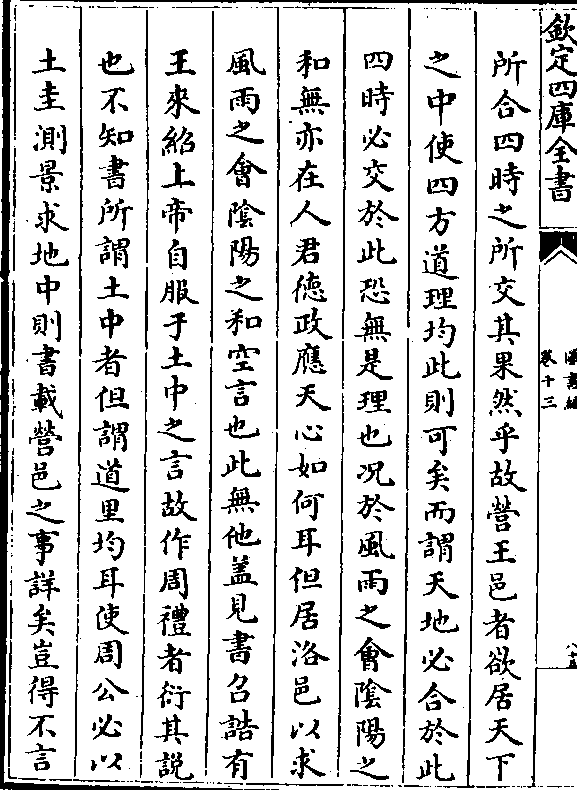 欽定四庫全書
卷十三
所合四時之所交其果然乎故營王邑者欲居天下
之中使四方道理均此則可矣而謂天地必合於此
四時必交於此恐無是理也况於風雨之會陰陽之
和無亦在人君徳政應天心如何耳但居洛邑以求
風雨之會陰陽之和空言也此無他葢見書召誥有
王來紹上帝自服于土中之言故作周禮者衍其説
也不知書所謂土中者但謂道里均耳使周公必以
土圭測景求地中則書載營邑之事詳矣豈得不言